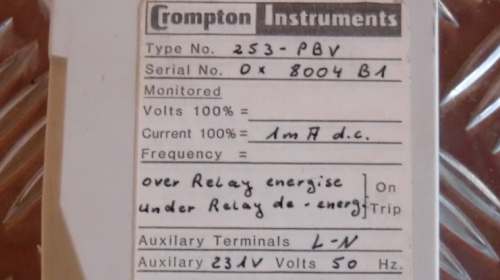 Crompton Instruments
Type No. 253-PBV
Serial No. 0x 8004 B1
Monitored
Volts 100% =
Current 100% = 1m A d.c.
Frequency =
over Relay energise ] On
under Relay de-energ. Trip
Auxilary Terminals L-N
Auxilary 231V Volts 50 Hz.